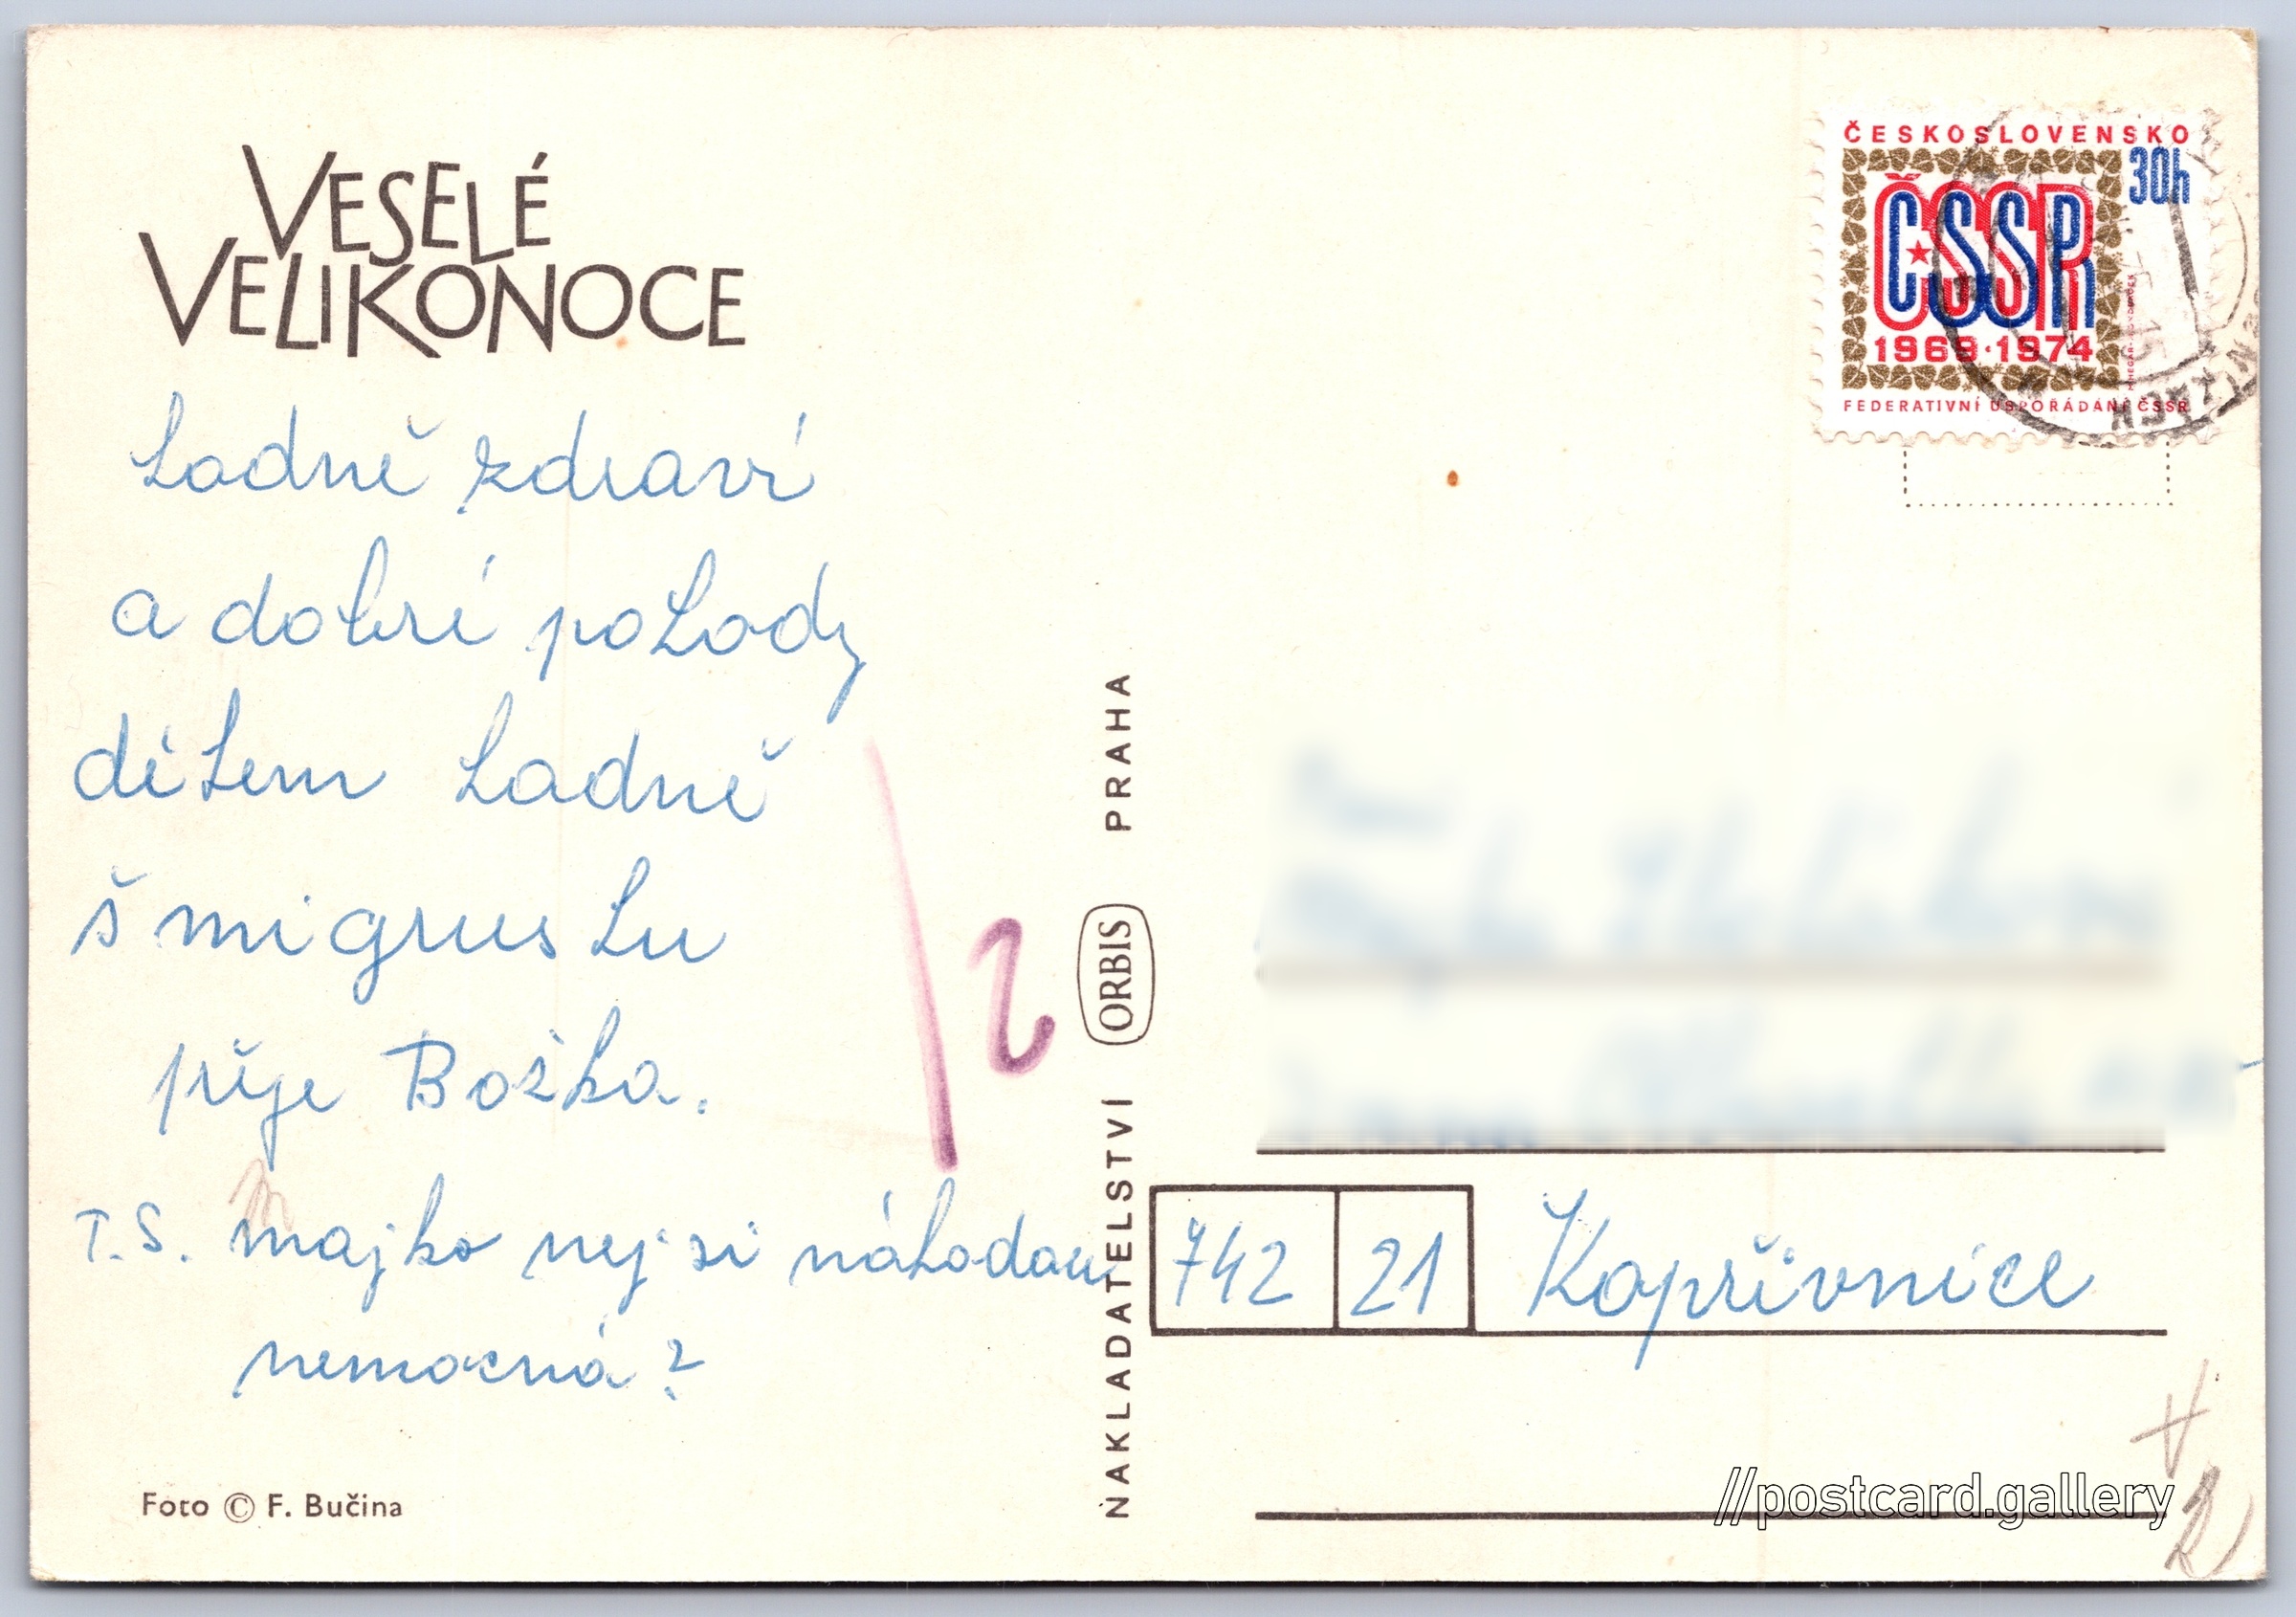 VESELÉ
VELIKONOCE
hodně zdraví
a dobré pohody
dětem hodně
šmigrustu
přeje Božka.
T.S. majko nejsi náhodou
nemocná?
Foto © F. Bučina
NAKLADATELSTVÍ ORBIS PRAHA
ČESKOSLOVENSKO
30h
ČSSR
1969·1974
FEDERATIVNÍ USPOŘÁDÁNÍ ČSSR
2
742 21 Kopřivnice
//postcard.gallery